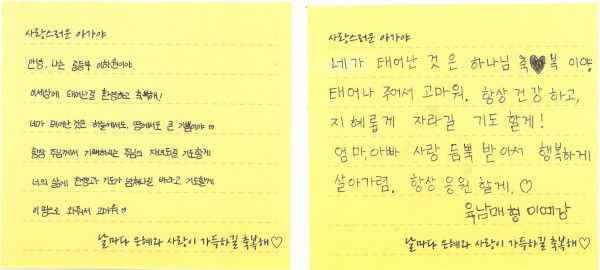 사랑스러운 아가야
안녕, 나는 중등부 이하원이야.
이세상에 태어난걸 환영하고 축복해!
네가 태어난것은 하늘에서도, 땅에서도 큰 기쁨이야 ♡
항상 주님께서 기뻐하시는 주님의 자녀되길 기도할게
너의 삶에 찬양과 기도가 넘쳐나길 바라고 기도할게
이 땅으로 와줘서 고마워 ♡
날마다 은혜와 사랑이 가득하길 축복해 ♡
사랑스러운 아가야
네가 태어난 것은 하나님 축♥복 이야
태어나 주어서 고마워. 항상 건강 하고,
지혜롭게 자라길 기도 할게!
엄마, 아빠 사랑 듬뿍 받아서 행복하게
살아가렴. 항상 응원 할게. ♡
육남매형 이예감
날마다 은혜와 사랑이 가득하길 축복해 ♡